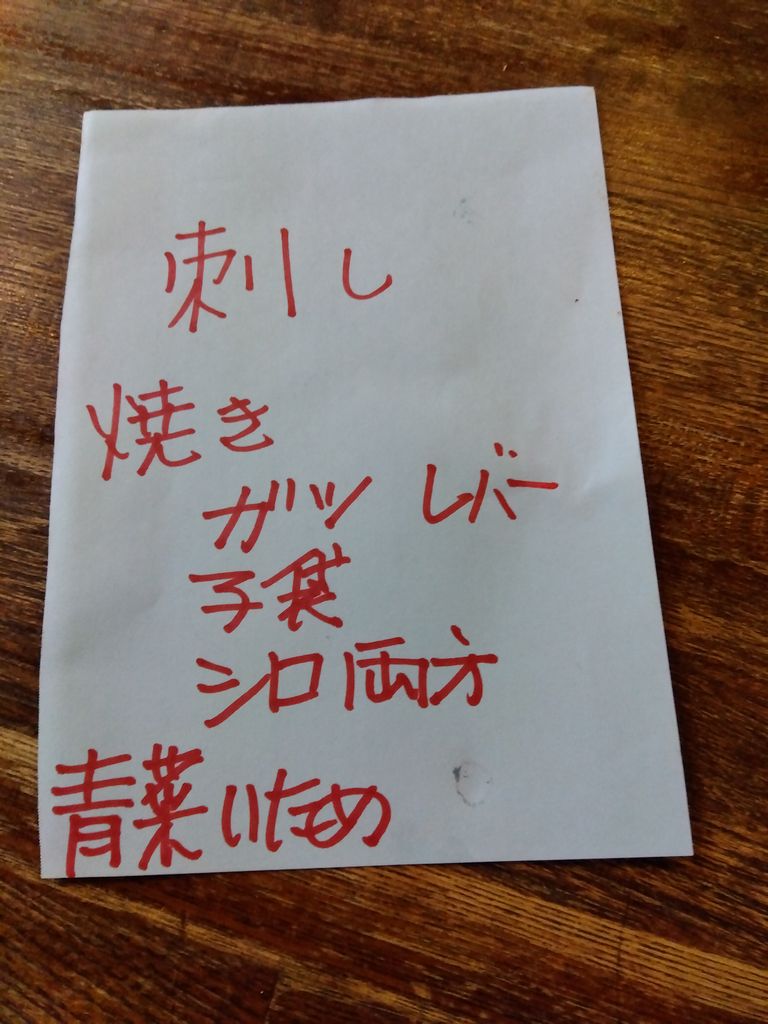 刺し
焼き
ガツ レバー
子袋
シロ両方
青菜いため